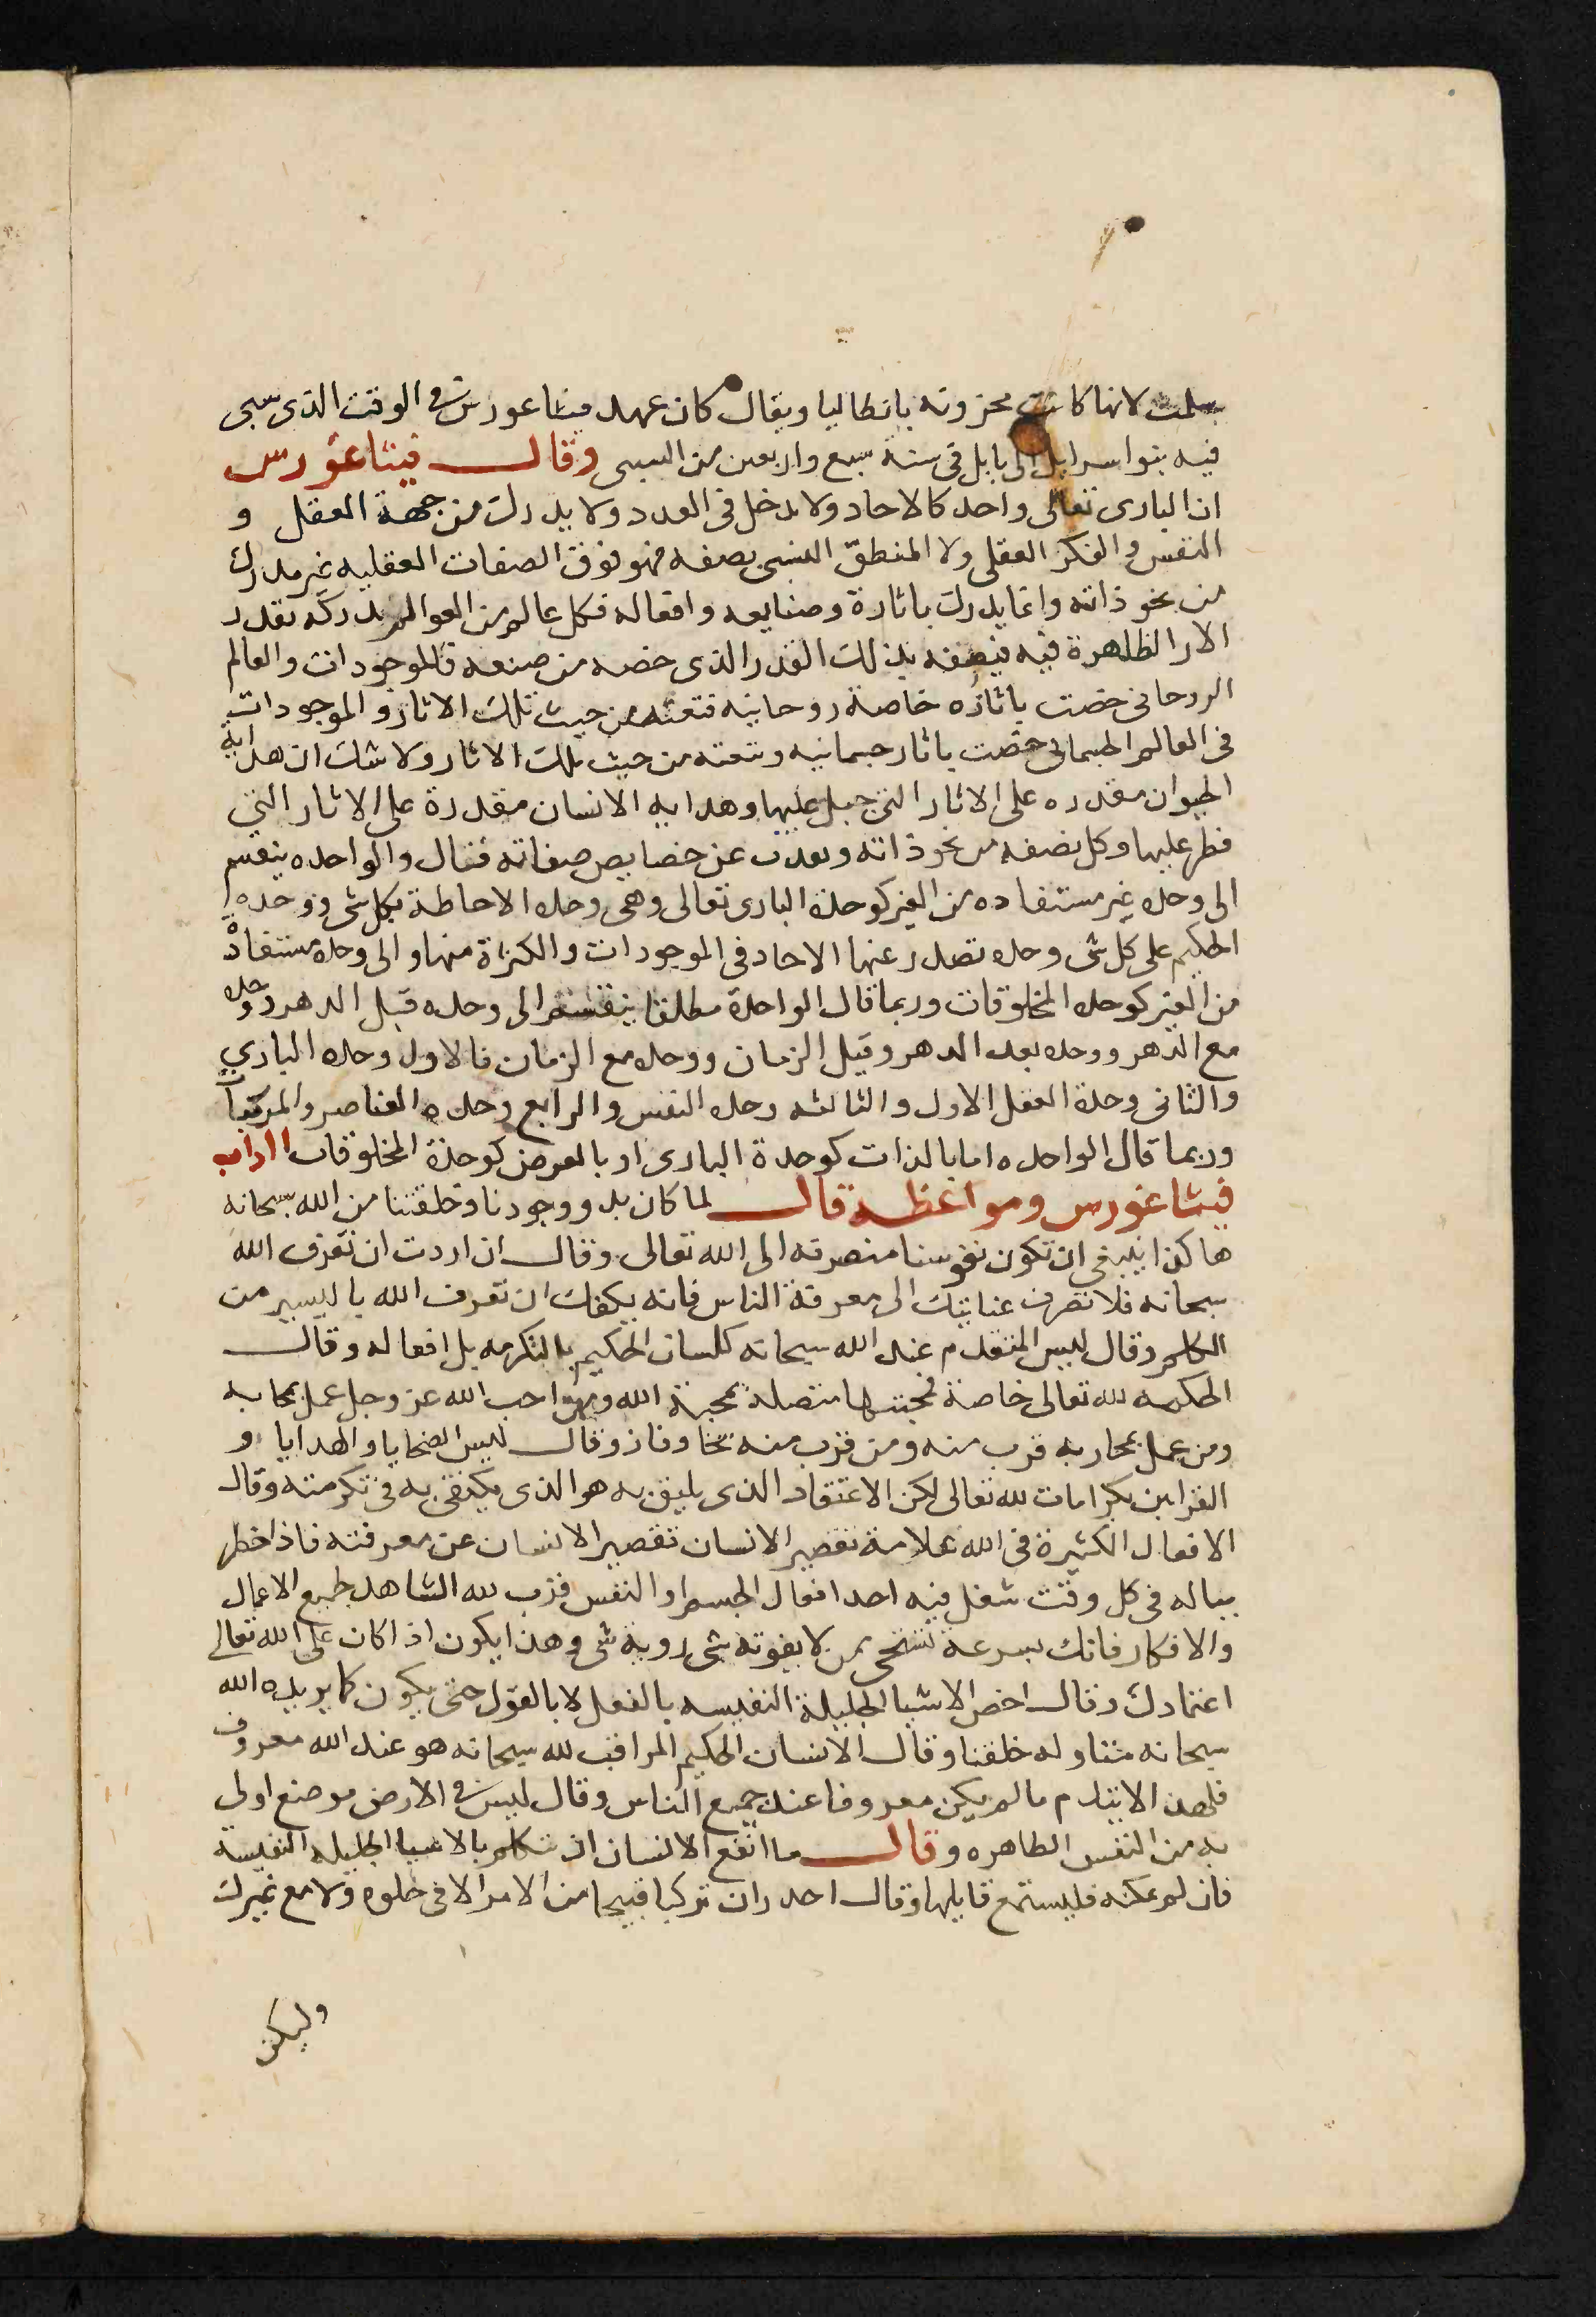 سلمت لانها كانت مخزونه بانطاليا ويقال كان عهد فيثاغورس فى الوقت الذى سبى
فيه بنوا سرايل الى بابل فى سنة سبع واربعين من السبى وقال فيثاغورس
ان البارى تعالى واحد كالاحاد ولا يدخل فى العدد ولا يدرك من جهة العقل و
النفس والفكر العقلى ولا المنطق النفسى يصفه فهو فوق الصفات العقليه غير مدرك
من نحو ذاته وانما يدرك باثارة وصنايعه وافعاله فكل عالم من العوالم يدركه بقدر
الاار الظاهرة فيه فيصفه بذلك القدر الذى خصه من صنعه فالموجودات والعالم
الروحانى خصت باثاره خاصة روحانيه فتنعته من حيث تلك الاثار والموجودات
فى العالم الجسمانى خصت باثار جسمانيه وتنعته من حيث تلك الاثار ولا شك ان هداية
الحيوان مقدره على الاثار التى جبل عليها وهدايه الانسان مقدرة على الاثار التى
فطر عليها وكل يصفه من نحو ذاته و عن خصايص صفاته فقال والواحده ينقسم
الى وحده غير مستفاده من الغير كوحدة البارى تعالى وهى وحده الاحاطة بكل شى ووحده
الحكيم على كل شى وحده تصدر عنها الاحاد فى الموجودات والكثرة منها والى وحده مستفادة
من الغير كوحده المخلوقات وربما قال الواحدة مطلقا ينقسم الى وحده قبل الدهر ووحده
مع الدهر ووحده بعد الدهر وقبل الزمان ووحده مع الزمان فالاول وحده البارى
والثانى وحدة العقل الاول والثالثه وحده النفس والرابع وحده العناصر والمركبات
وربما قال الواحده اما بالذات كوحدة البارى او بالعرض كوحدة المخلوقات اداب
فيثاغورس ومواعظه قال لما كان بدو وجودنا وخلقتنا من الله سبحانه
هاكذا ينبغى ان تكون نفوسنا منصرفه الى الله تعالى وقال ان اردت ان تعرف الله
سبحانه فلا تصرف عنايتك الى معرفة الناس فانه يكفك ان تعرف الله باليسير من
الكلام وقال ليس المتقدم عند الله سبحانه كلسان الحكيم بالتكرمه بل افعاله وقال
الحكمه لله تعالى خاصة فمحبتها متصلة بمحبة الله ومن احب الله عز وجل عمل بمحابه
ومن عمل بمحاربه قرب منه ومن قرب منه نجا وفاز وقال ليس الضحايا والهدايا و
القرابين بكرامات لله تعالى لكن الاعتقاد الذى يليق به هو الذى يكتفى به فى تكرمته وقال
الافعال الكثيرة فى الله علامة تقصير الانسان تقصير الانسان عن معرفته فاذا خطر
بباله فى كل وقت شغل فيه احد افعال الجسم او النفس قرب لله الشاهد جميع الاعمال
والافكار فانك بسرعة تستحى ممن لا يفوته شى روية شى وهذا يكون اذا كان على الله تعالى
اعتمادك وقال اخص الاشيا الجليلة النفيسه بالفعل لا بالقول حتى يكون كما يريده الله
سبحانه متناوله خلقنا وقال الانسان الحكيم المراقب لله سبحانه هو عند الله معروف
فلهذا لا يتندم ما لم يكن معروفا عند جميع الناس وقال ليس فى الارض موضع اولى
به من النفس الطاهره وقال ما انفع الانسان ان يتكلم بالاشيا الجليله النفيسه
فان لم يمكنه فليستمع قايلها وقال احدر ان تركب قبيحا من الامر الا فى خلوه ولا مع غيرك
وليكن